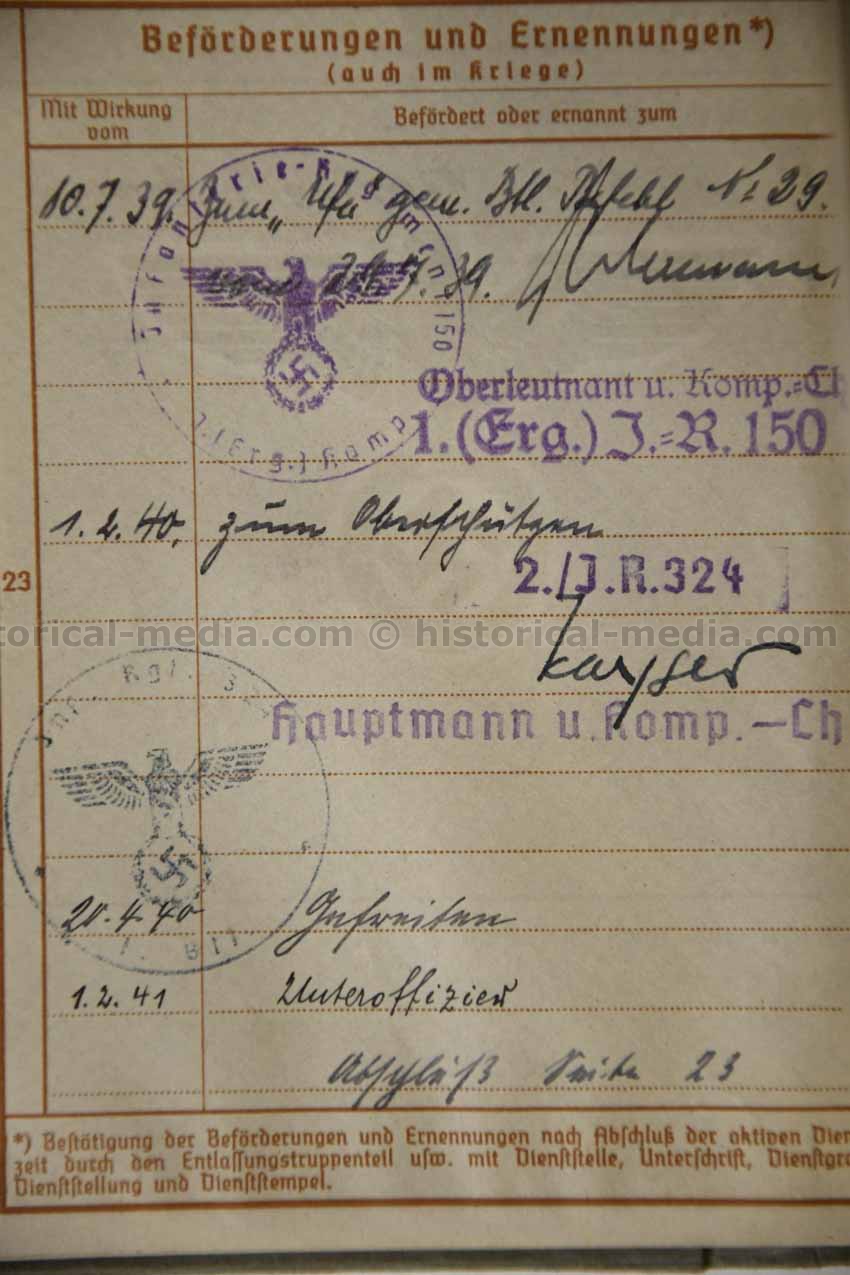 Beförderungen und Ernennungen*)
(auch im Kriege)
Mit Wirkung
vom
Befördert oder ernannt zum
10.7.39. Zum „Ufa“ gem. Btl. Befehl Nr 29.
7.39.
Infanterie-Regiment 150
1.(Erg.) Komp.
Oberleutnant u. Komp.=Ch
1.(Erg.) J.=R.150
1.2.40. zum Oberschützen
23
2./J.R.324
torical-media.com © historical-media.com
Inf. Rgt.
Hauptmann u. Komp.—Ch
20.4.40 Gefreiten
I. Btl.
1.2.41 Unteroffizier
Abschluß Seite 23
*) Bestätigung der Beförderungen und Ernennungen nach Abschluß der aktiven Dien
zeit durch den Entlassungstruppenteil usw. mit Dienststelle, Unterschrift, Dienstgra
Dienststellung und Dienststempel.